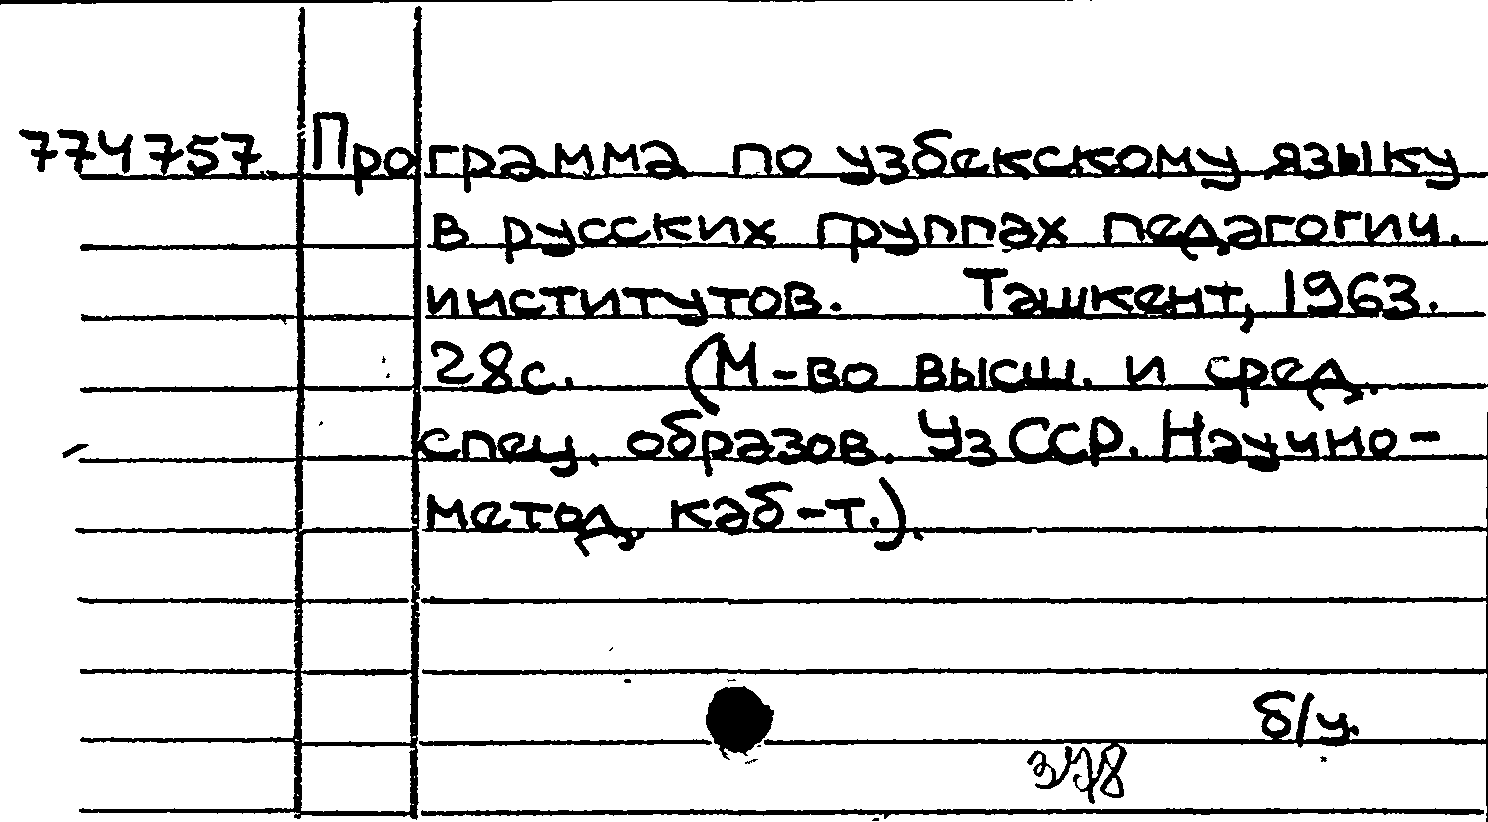 774757. Программа по узбекскому языку
в русских группах педагогич.
институтов. Ташкент, 1963.
28с. (М-во высш. и сред.
спец. образов. УзССР. Научно-
метод. каб-т.).
б/у.
378